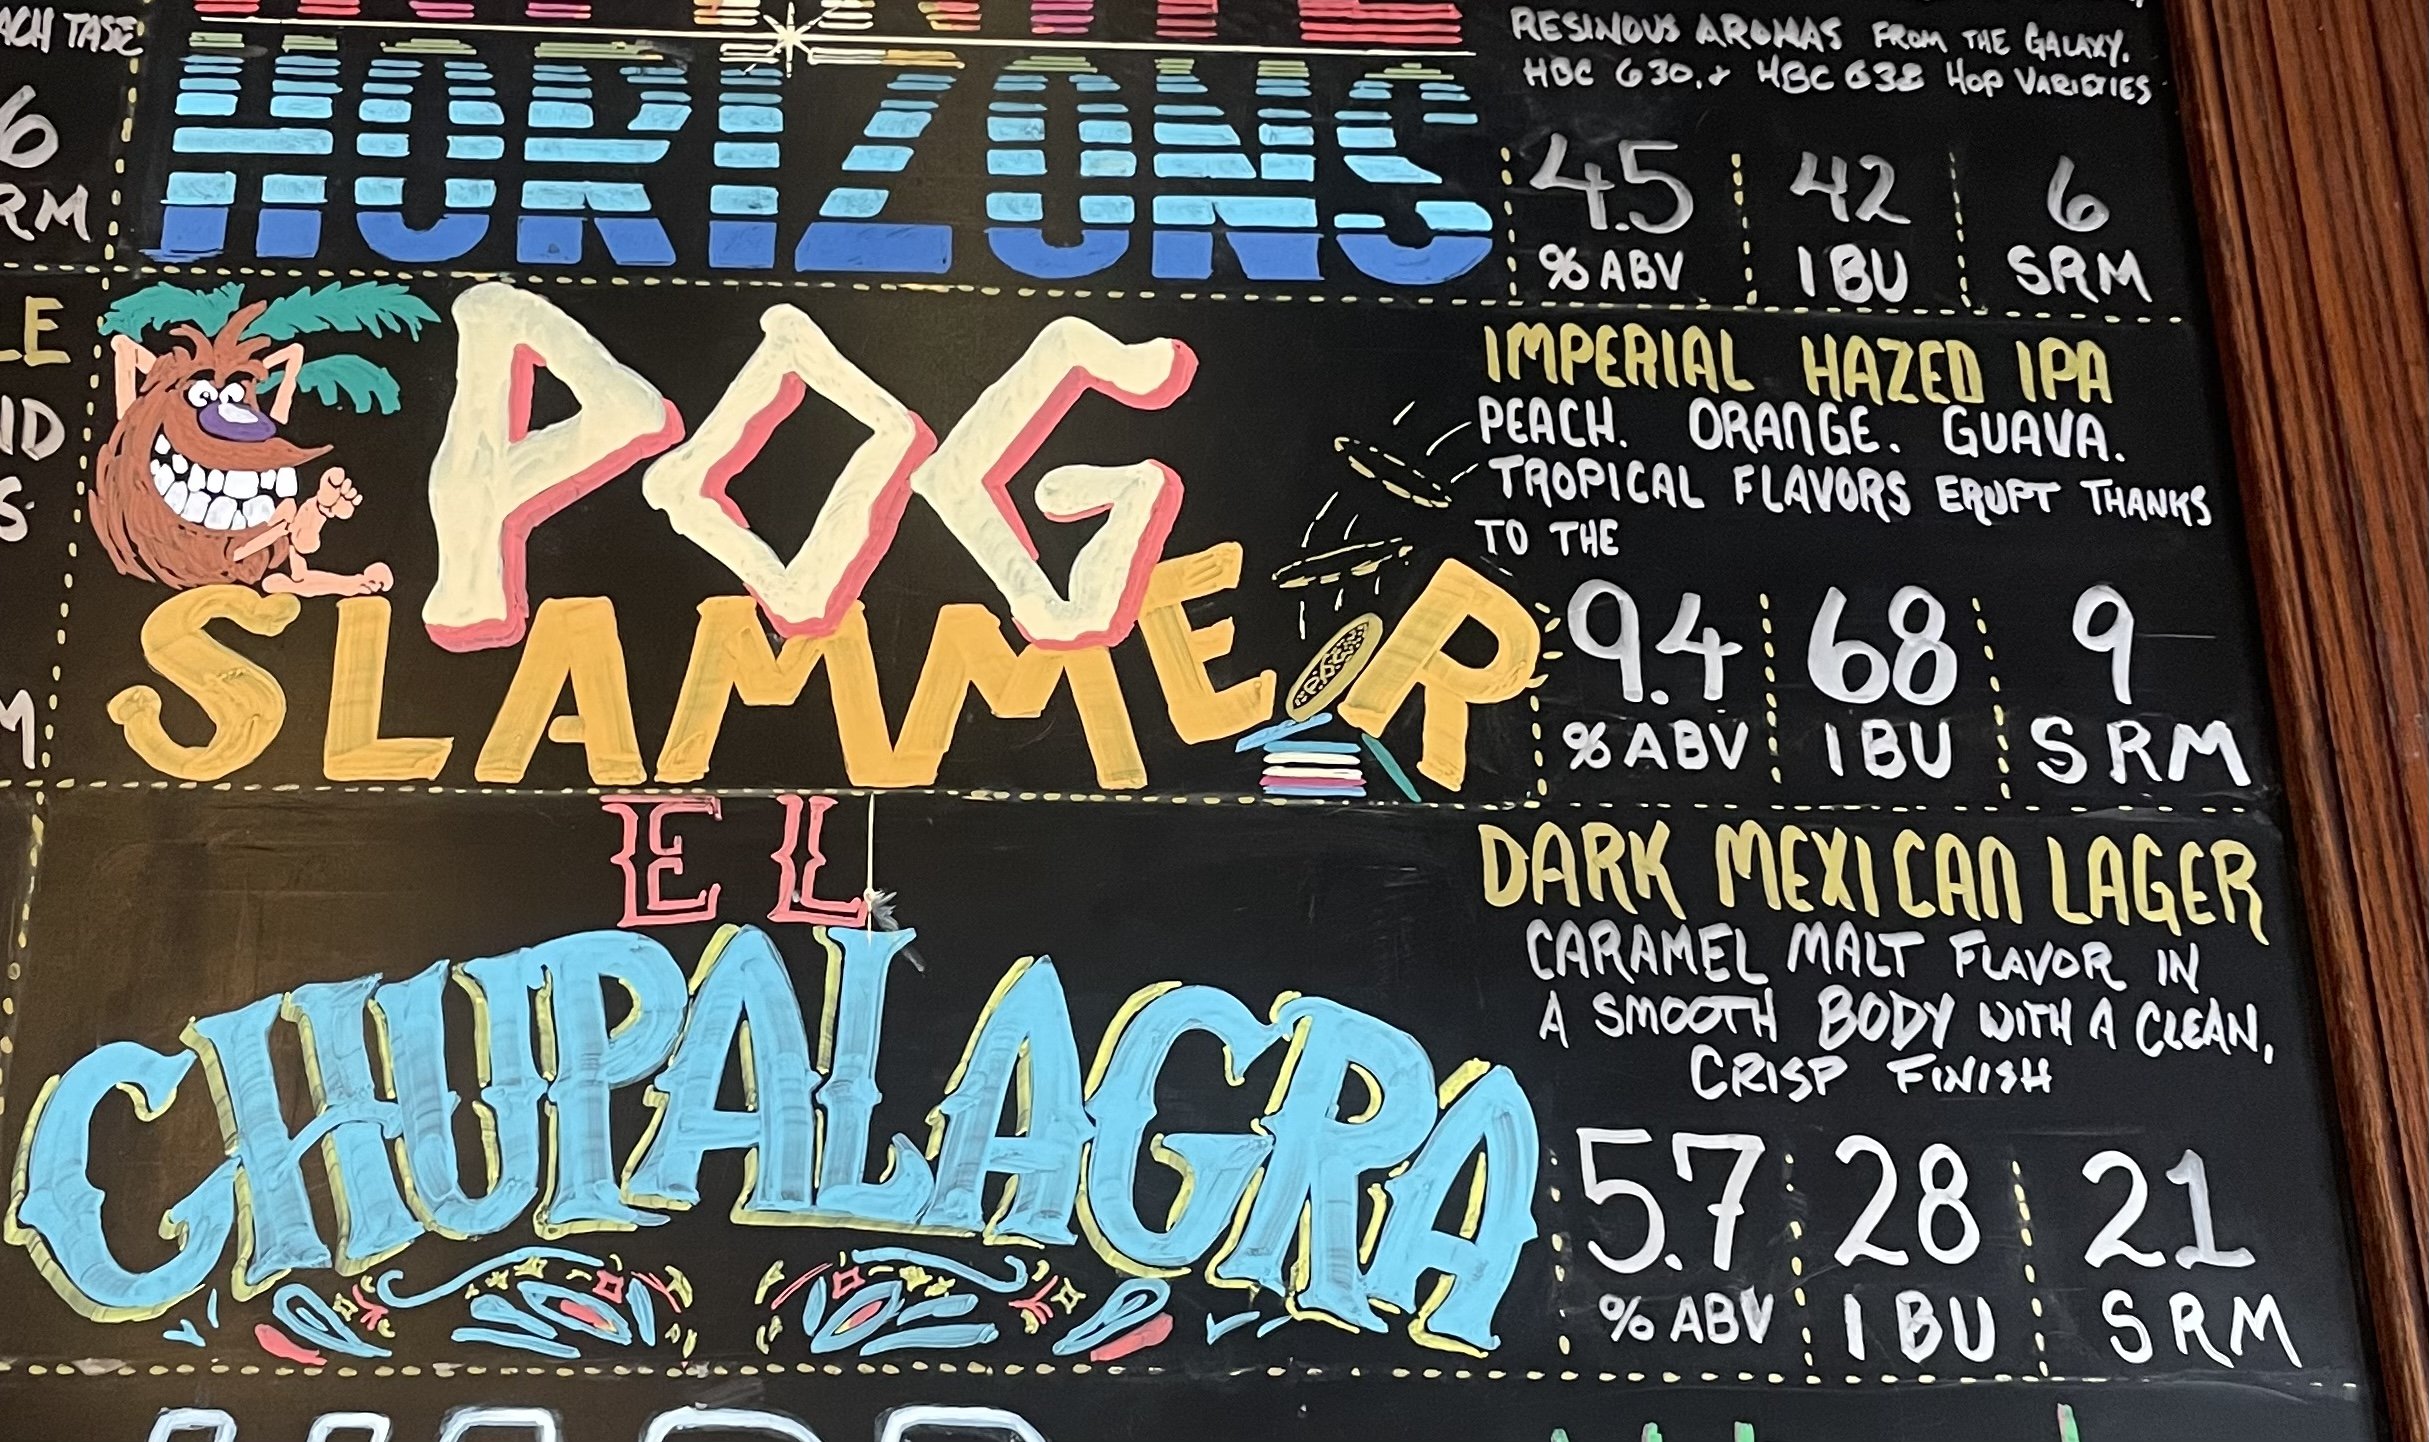 ACH TASTE
6
RM
LE
ID
S.
M
HORIZONS
RESINOUS AROMAS FROM THE GALAXY,
HBC 630, & HBC 638 HOP VARIETIES
4.5 42 6
% ABV IBU SRM
POG
SLAMMER
IMPERIAL HAZED IPA
PEACH. ORANGE. GUAVA.
TROPICAL FLAVORS ERUPT THANKS
TO THE
9.4 68 9
% ABV IBU SRM
EL
CHUPALAGRA
DARK MEXICAN LAGER
CARAMEL MALT FLAVOR IN
A SMOOTH BODY WITH A CLEAN,
CRISP FINISH
5.7 28 21
% ABV IBU SRM